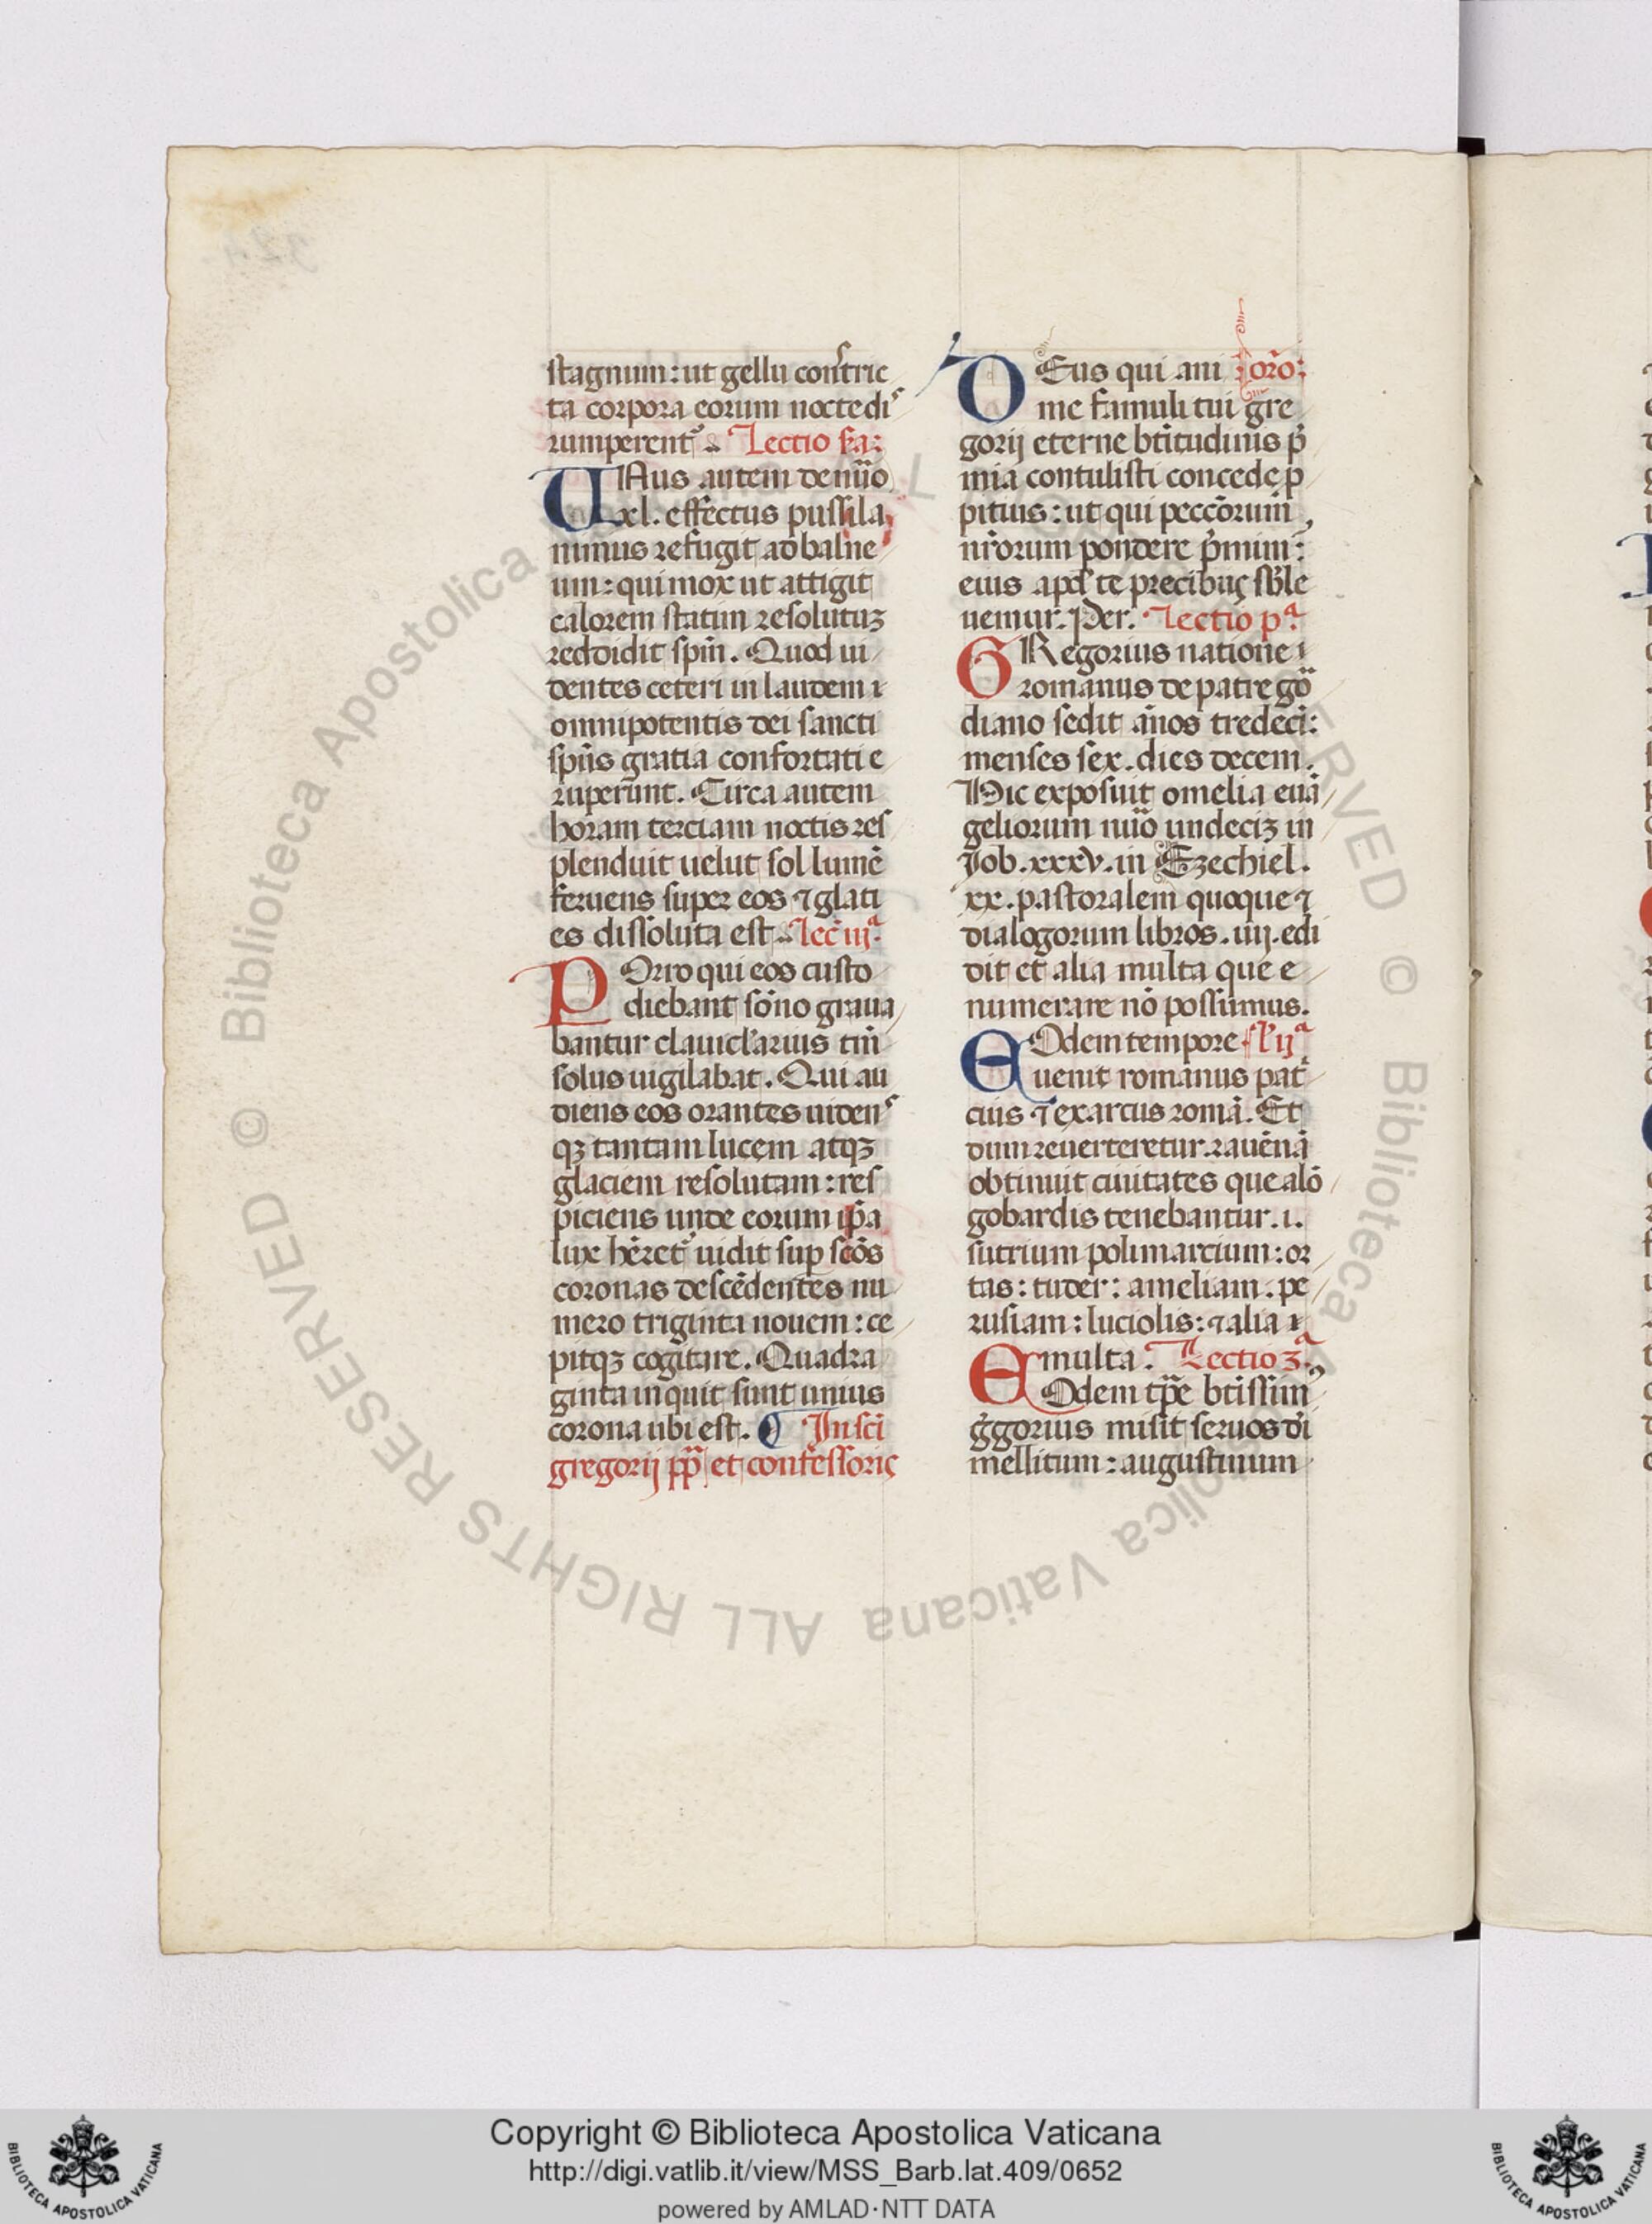 stagnum: ut gellu constric
ta corpora eorum nocte di
rumperent᷑. Lectio s̄a:
UNus autem de nūo
xl. effectus pussila
nimus refugit ad balne
um: qui mox ut attigit
calorem statim resolutuꝫ
reddidit spm̄. Quod ui
dentes ceteri in laudem
omnipotentis dei sancti
sp̄us gratia confortati e
ruperunt. Circa autem
horam terciam noctis res
plenduit uelut sol lumē
feruens super eos ⁊ glati
es dissoluta est. Lec̄ iijᵃ.
POrro qui eos custo
diebant sōno graua
bantur clauicl'arius tm̄
solus uigilabat. Qui au
diens eos orantes uiden
qꝫ tantam lucem atqꝫ
glaciem resolutam: res
piciens unde eorum ip̄a
lux hēret᷑ uidit sup sc̄os
coronas descēdentes nu
mero triginta nouem: ce
pitqꝫ cogitare. Quadra
ginta inquit sunt unius
corona ubi est. ¶ In sc̄i
gregorij pp̄ et confessoris
DEus qui ani Orō:
me famuli tui gre
gorij eterne bt̄itudinis p̄
mia contulisti concede p
pitius: ut qui pecc̄orum
nr̄orum pondere p̄mim̄:
eius apd' te precibus sb̄le
uemur. Per. Lectio pᵃ.
GRegorius natione
romanus de patre gō
diano sedit ānos tredecī:
menses sex. dies decem.
Hic exposuit omelia euā
geliorum nūo undeciꝫ in
Job. xxxv. in Ezechiel.
xx. pastoralem quoque ⁊
dialogorum libros. iiij. edi
dit et alia multa que e
numerare nō possumus.
EOdem tempore L' ijᵃ
uenit romanus pat̄
cius ⁊ exarcus romā. Et
dum reuerteretur rauēnā
obtinuit ciuitates que a lō
gobardis tenebantur. i.
sutrium polimarcium: or
tas: tuder: ameliam: pe
rusiam: luciolis: ⁊ alia
multa. Lectio 3ᵃ.
EOdem tp̄e bt̄issimꝰ
ḡgorius misit seruos d̄i
mellitum: augustinum
Copyright © Biblioteca Apostolica Vaticana
http://digi.vatlib.it/view/MSS_Barb.lat.409/0652
powered by AMLAD·NTT DATA
BIBLIOTECA APOSTOLICA VATICANA
BIBLIOTECA APOSTOLICA VATICANA
© Biblioteca Apostolica Vaticana ALL RIGHTS RESERVED
© Biblioteca Apostolica Vaticana ALL RIGHTS RESERVED